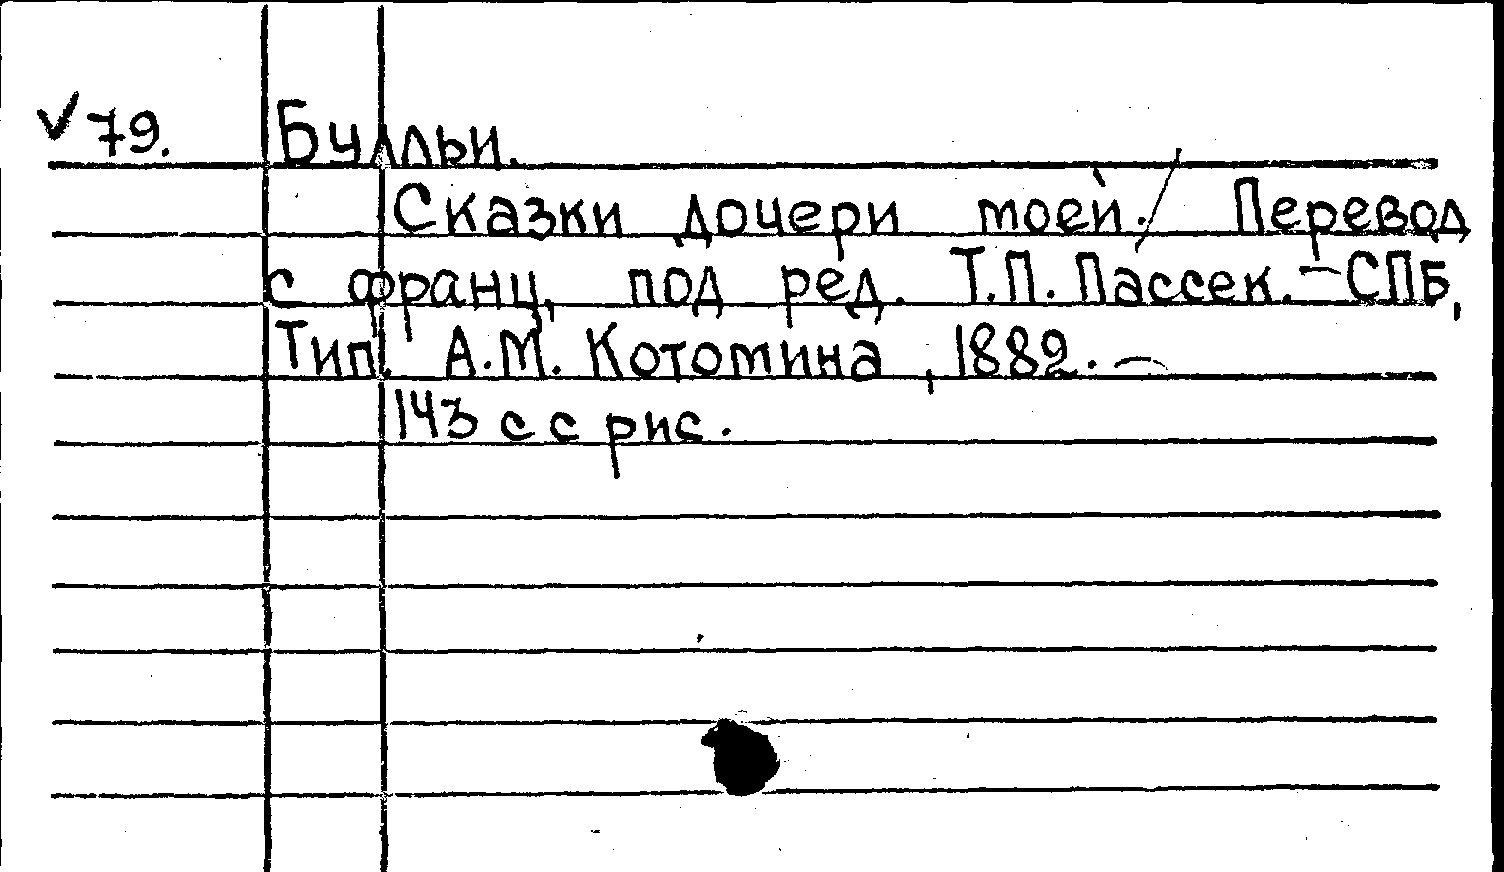 ✓ 79. Булльи.
Сказки дочери моей. / Перевод
с франц. под ред. Т.П. Пассек. — СПБ,
Тип. А.М. Котомина, 1882. —
143 с с рис.